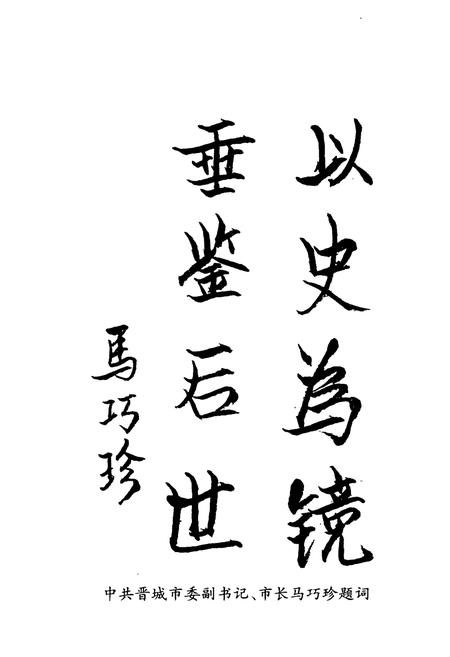 以史為镜
垂鉴后世
馬巧珍
中共晋城市委副书记、市长马巧珍题词